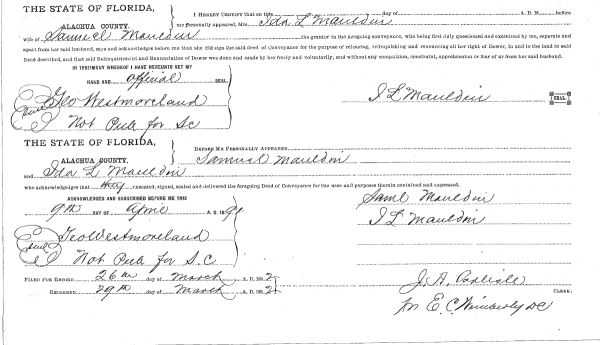 THE STATE OF FLORIDA,
ALACHUA COUNTY.
I HEREBY CERTIFY that on this day of A. D. 18 before
me personally appeared, Mrs. Ida L Mauldin
wife of Samuel Mauldin the grantor in the foregoing conveyance, who being first duly questioned and examined by me, separate and
apart from her said husband, says and acknowledges before me that she did sign the said deed of Conveyance for the purpose of releasing, relinquishing and renouncing all her right of Dower, in and to the land in said
Deed described, and that said Relinquishment and Renunciation of Dower was done and made by her freely and voluntarily, and without any compulsion, constraint, apprehension or fear of or from her said husband.
IN TESTIMONY WHEREOF I HAVE HEREUNTO SET MY
HAND AND official SEAL
Geo Westmoreland
Seal
Not Pub for S.C
I L Mauldin SEAL
THE STATE OF FLORIDA,
ALACHUA COUNTY.
BEFORE ME PERSONALLY APPEARED
Samuel Mauldin
and Ida L Mauldin
who acknowledges that they executed, signed, sealed and delivered the foregoing Deed of Conveyance for the uses and purposes therein contained and expressed,
ACKNOWLEDGED AND SUBSCRIBED BEFORE ME THIS
Saml Mauldin
9th DAY OF April A. D. 189
I L Mauldin
Geo Westmoreland
Seal
Not Pub for S.C
FILED FOR RECORD 26th day of March A. D. 1892
J. A. Carlisle
RECORDED 29th day of March A. D. 1892
CLERK.
pr E. C. Wimberly DC